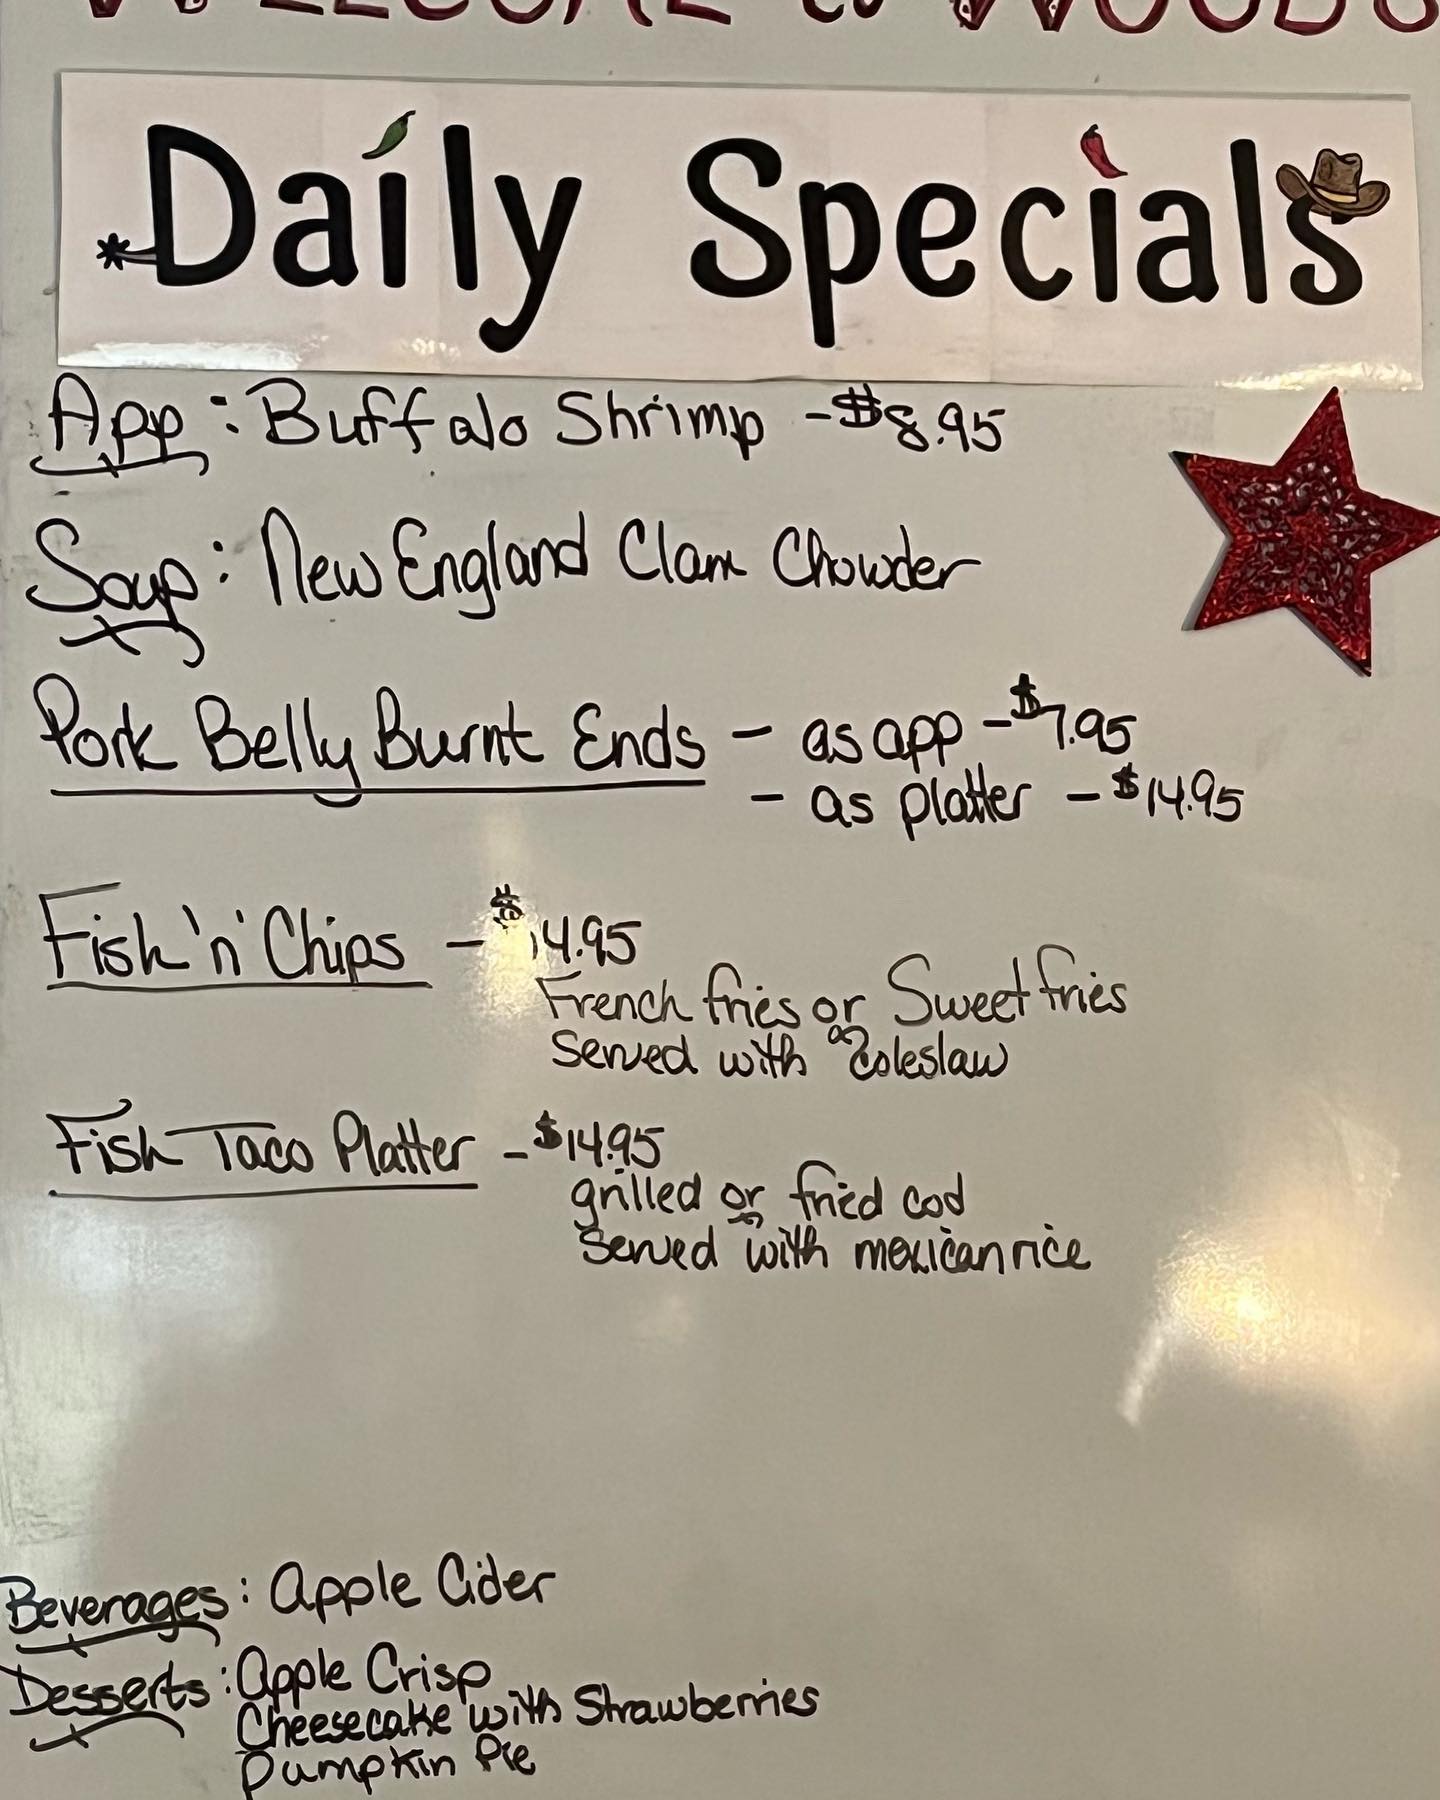 WELCOME to WOODS
Daily Specials
App: Buffalo Shrimp - $8.95
Soup: New England Clam Chowder
Pork Belly Burnt Ends - as app - $7.95
- as platter - $14.95
Fish 'n' Chips - $14.95
French fries or Sweet fries
Served with coleslaw
Fish Taco Platter - $14.95
grilled or fried cod
Served with mexican rice
Beverages: Apple Cider
Desserts: Apple Crisp
Cheesecake with Strawberries
Pumpkin Pie